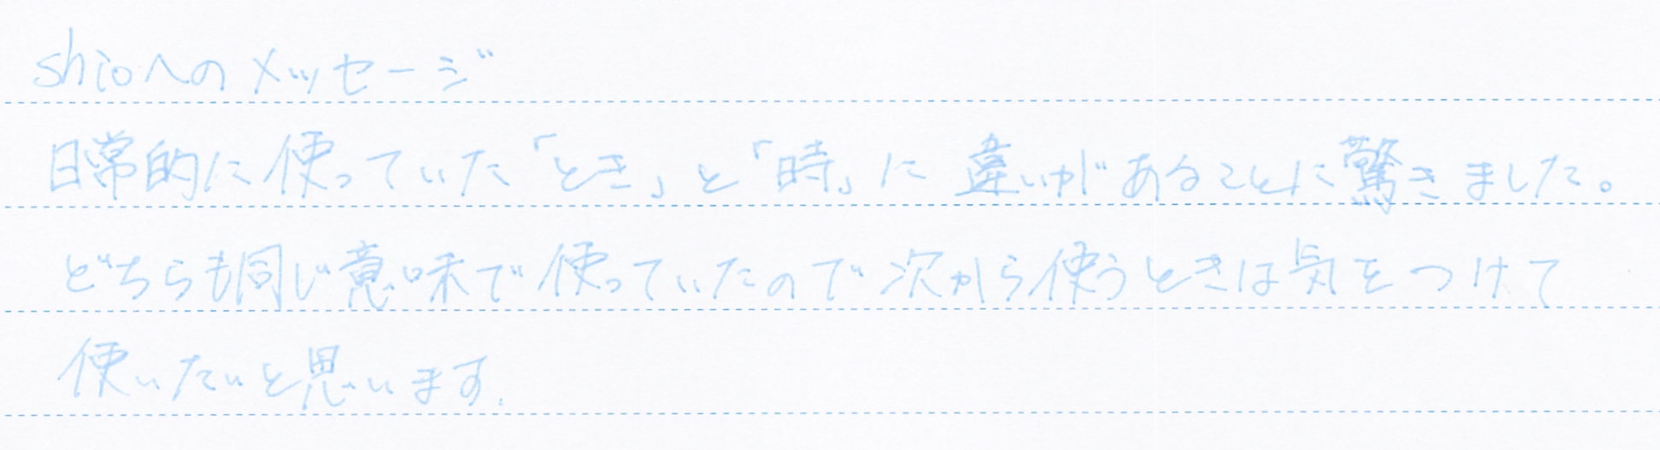 shioへのメッセージ
日常的に使っていた「とき」と「時」に違いがあることに驚きました。
どちらも同じ意味で使っていたので次から使うときは気をつけて
使いたいと思います.